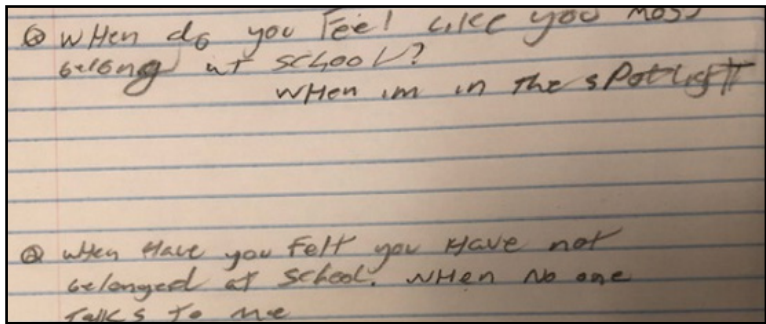 Q WHen do you Feel Like you most
belong at school?
WHen im in The spotlight
Q wHen Have you Felt you Have not
belonged at school. WHen No one
Talks To me